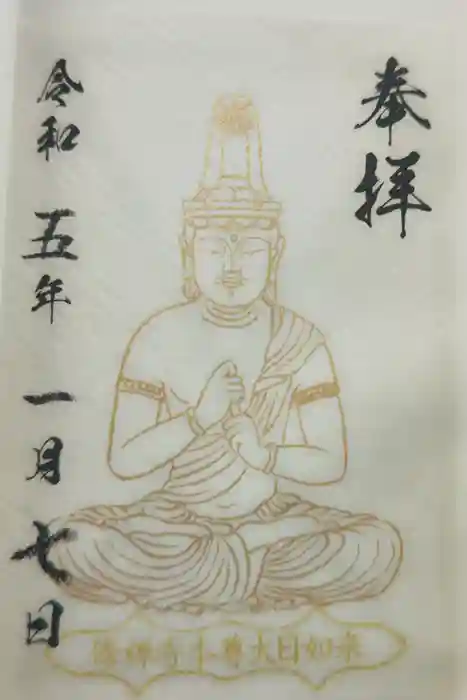 奉拝
令和 五年 一月 七日
禅寺本尊大日如来